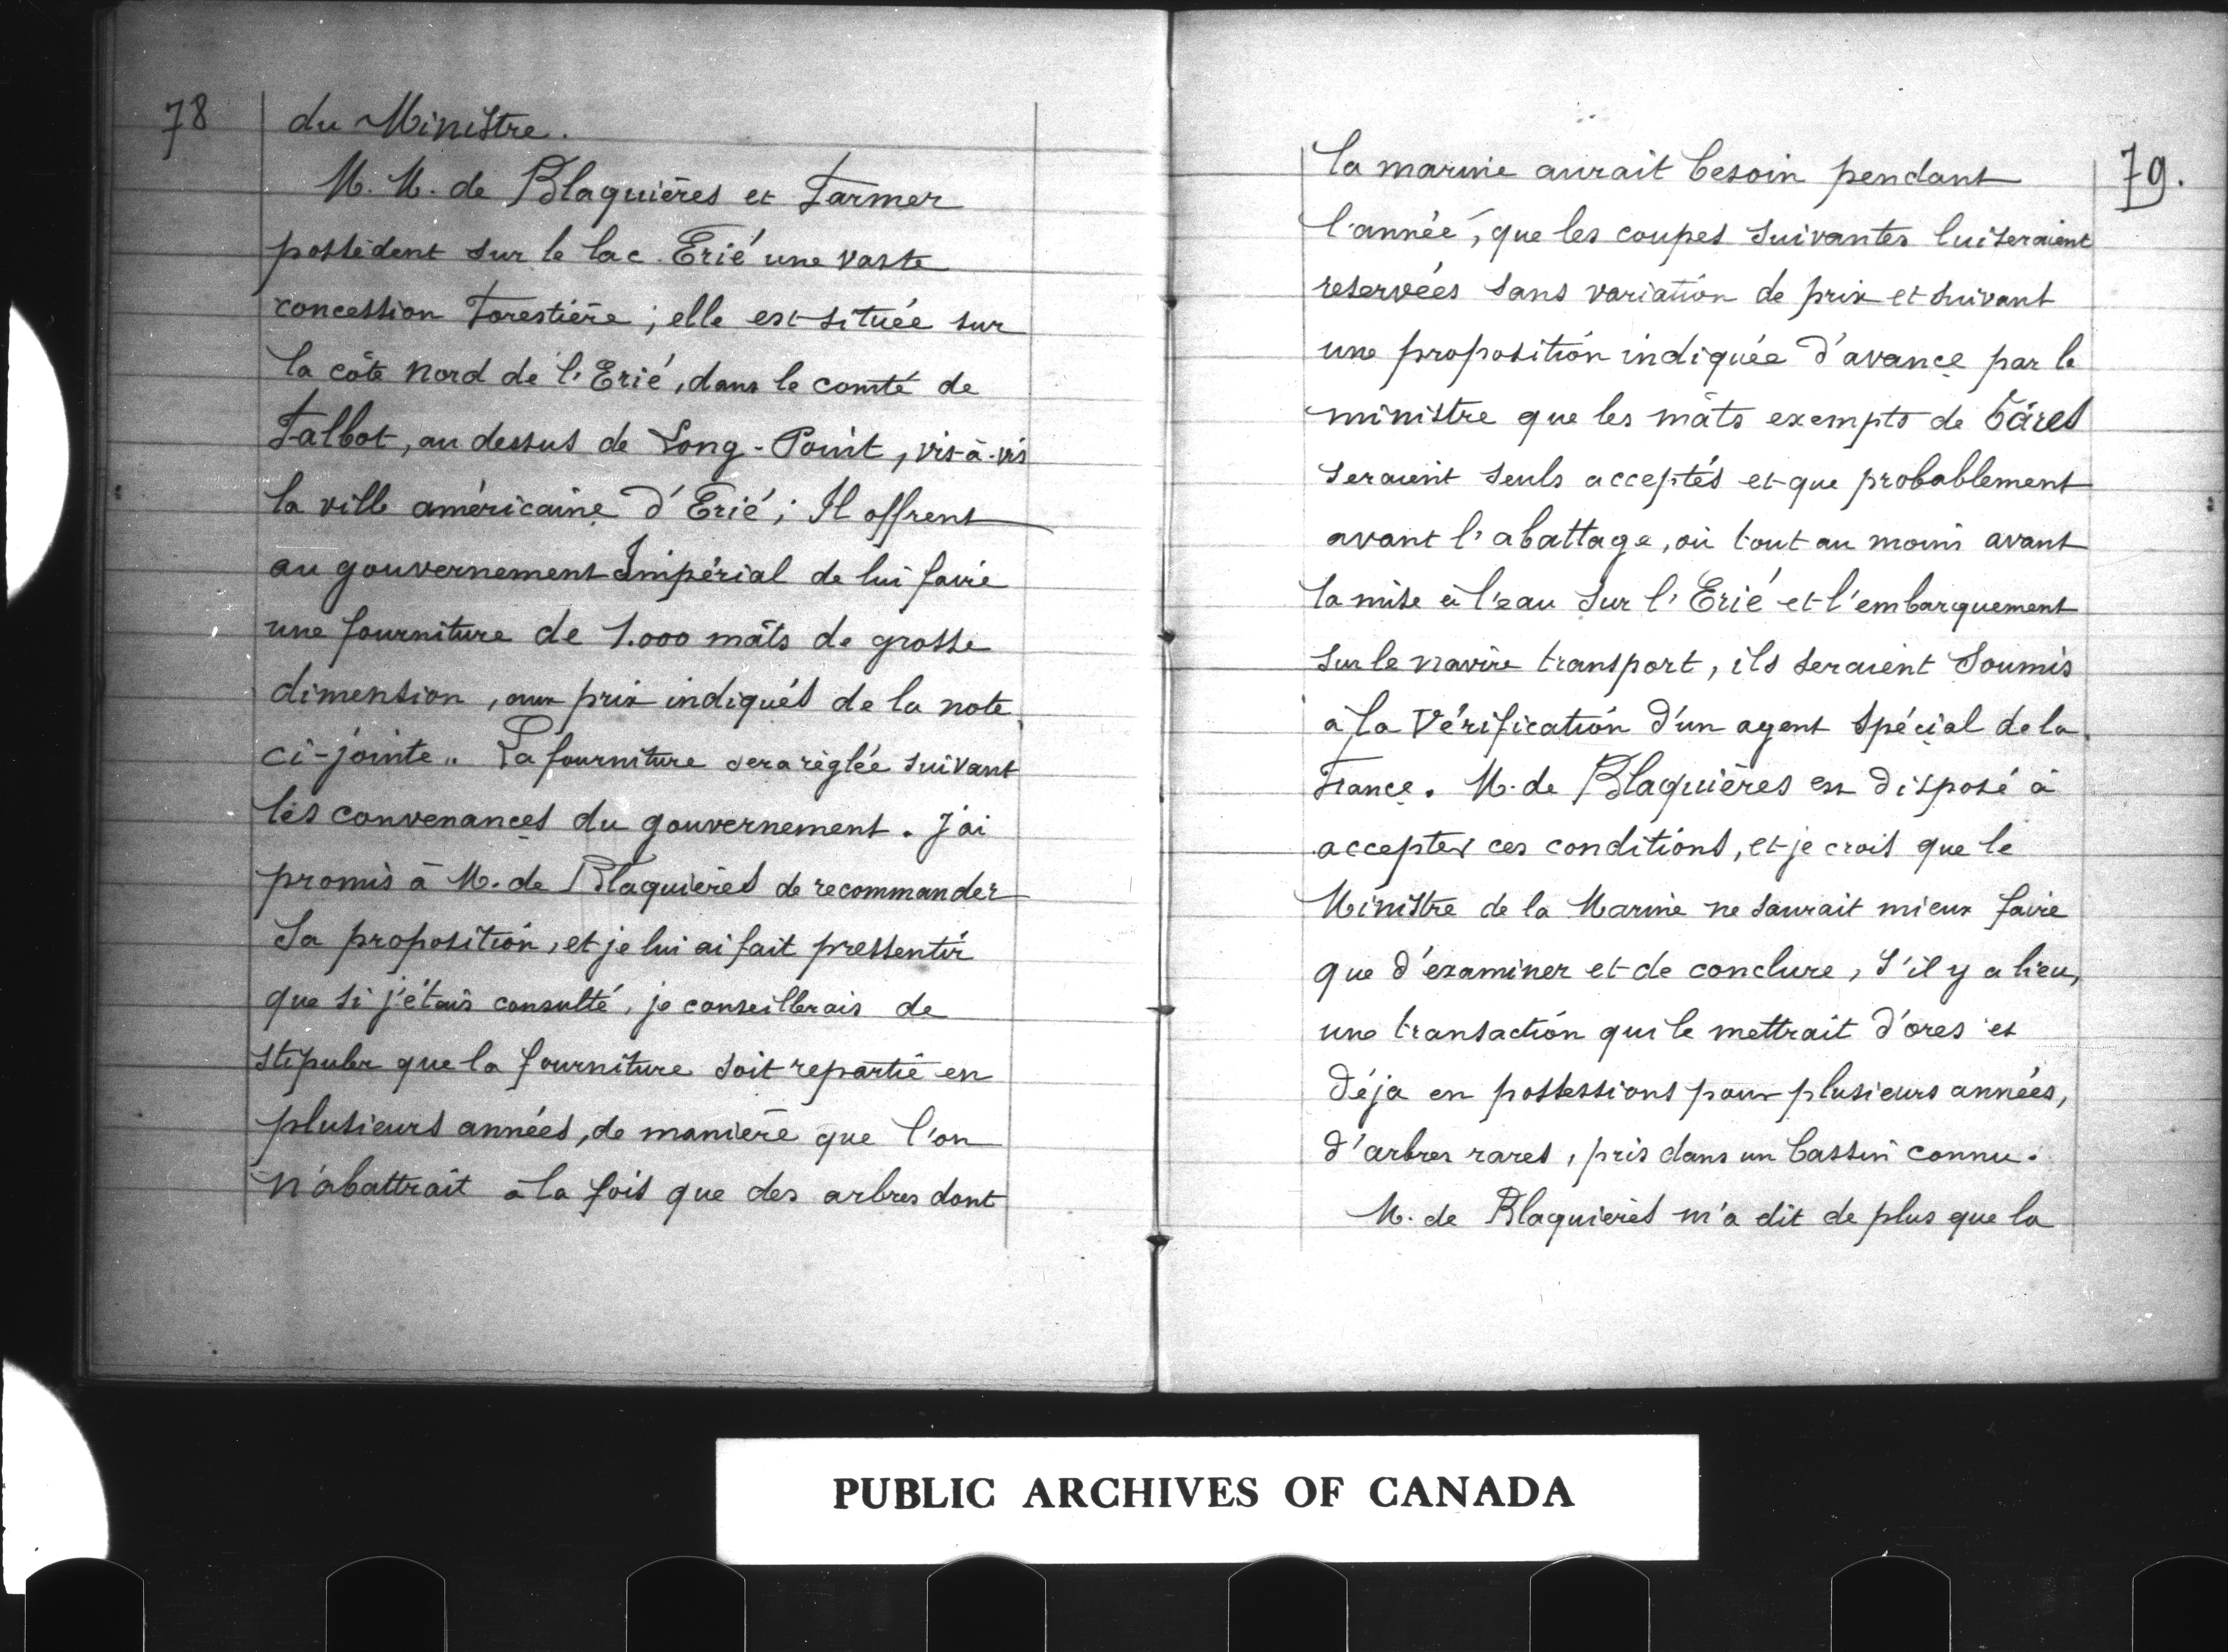 78
du Ministre.
M. M. de Blaquières et Farmer
possèdent sur le lac Erié une vaste
concession Forestière ; elle est située sur
la côte nord de l'Erié, dans le comté de
Talbot, au dessus de Long-Point, vis-à-vis
la ville américaine d'Erié ; Il offrent
au gouvernement Impérial de lui faire
une fourniture de 1.000 mâts de grosse
dimension, aux prix indiqués de la note
ci-jointe.. La fourniture sera réglée suivant
les convenances du gouvernement. J'ai
promis à M. de Blaquières de recommander
sa proposition, et je lui ai fait pressentir
que si j'étais consulté, je conseillerais de
stipuler que la fourniture soit repartie en
plusieurs années, de manière que l'on
n'abattrait à la fois que des arbres dont
79.
la marine aurait besoin pendant
l'année, que les coupes suivantes lui seraient
reservées sans variation de prix et suivant
une proposition indiquée d'avance par le
ministre que les mâts exempts de tares
seraient seuls acceptés et que probablement
avant l'abattage, où tout au moins avant
la mise à l'eau sur l'Erié et l'embarquement
sur le navire transport, ils seraient soumis
à la vérification d'un agent spécial de la
France. M. de Blaquières est disposé à
accepter ces conditions, et je crois que le
Ministre de la Marine ne saurait mieux faire
que d'examiner et de conclure, s'il y a lieu,
une transaction qui le mettrait d'ores et
déja en possessions pour plusieurs années,
d'arbres rares, pris dans un bassin connu.
M. de Blaquières m'a dit de plus que la
PUBLIC ARCHIVES OF CANADA